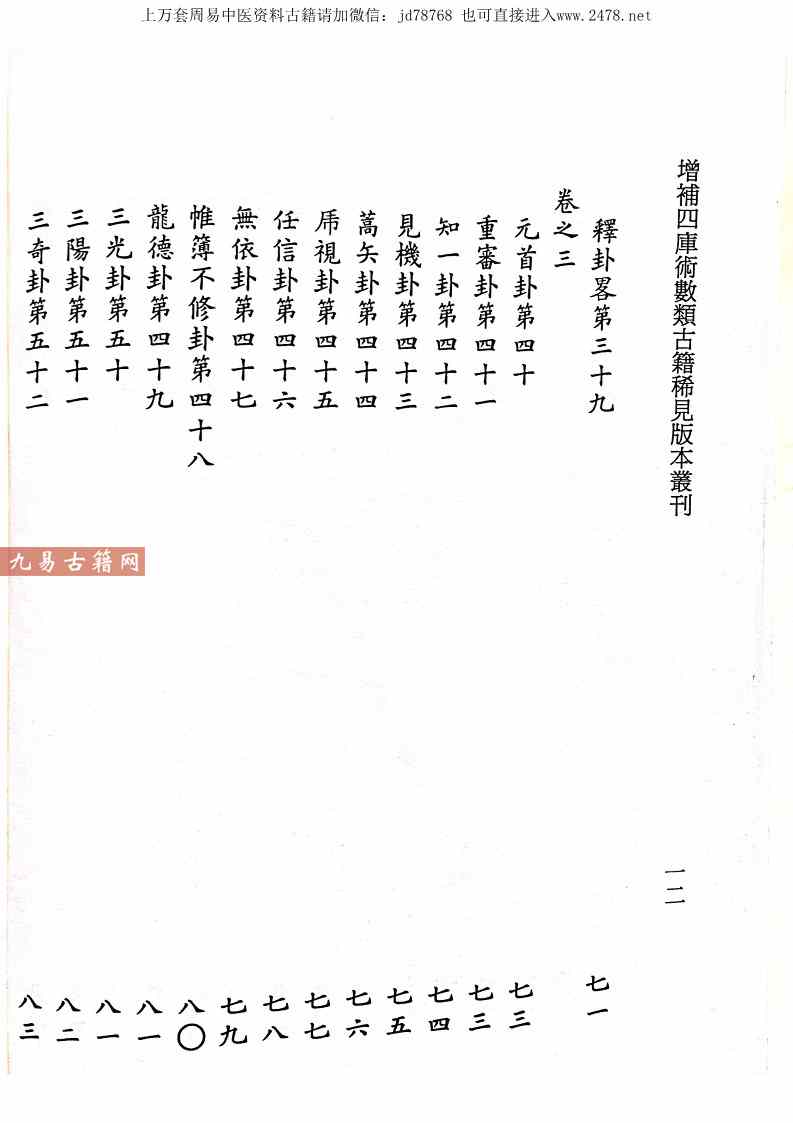 上万套周易中医资料古籍请加微信：jd78768 也可直接进入www.2478.net
增補四庫術數類古籍稀見版本叢刊
一二
釋卦畧第三十九 七一
卷之三
元首卦第四十 七三
重審卦第四十一 七三
知一卦第四十二 七四
見機卦第四十三 七五
蒿矢卦第四十四 七六
乕視卦第四十五 七七
任信卦第四十六 七八
無依卦第四十七 七九
惟簿不修卦第四十八 八〇
龍德卦第四十九 八一
三光卦第五十 八一
三陽卦第五十一 八二
三奇卦第五十二 八三
九易古籍网